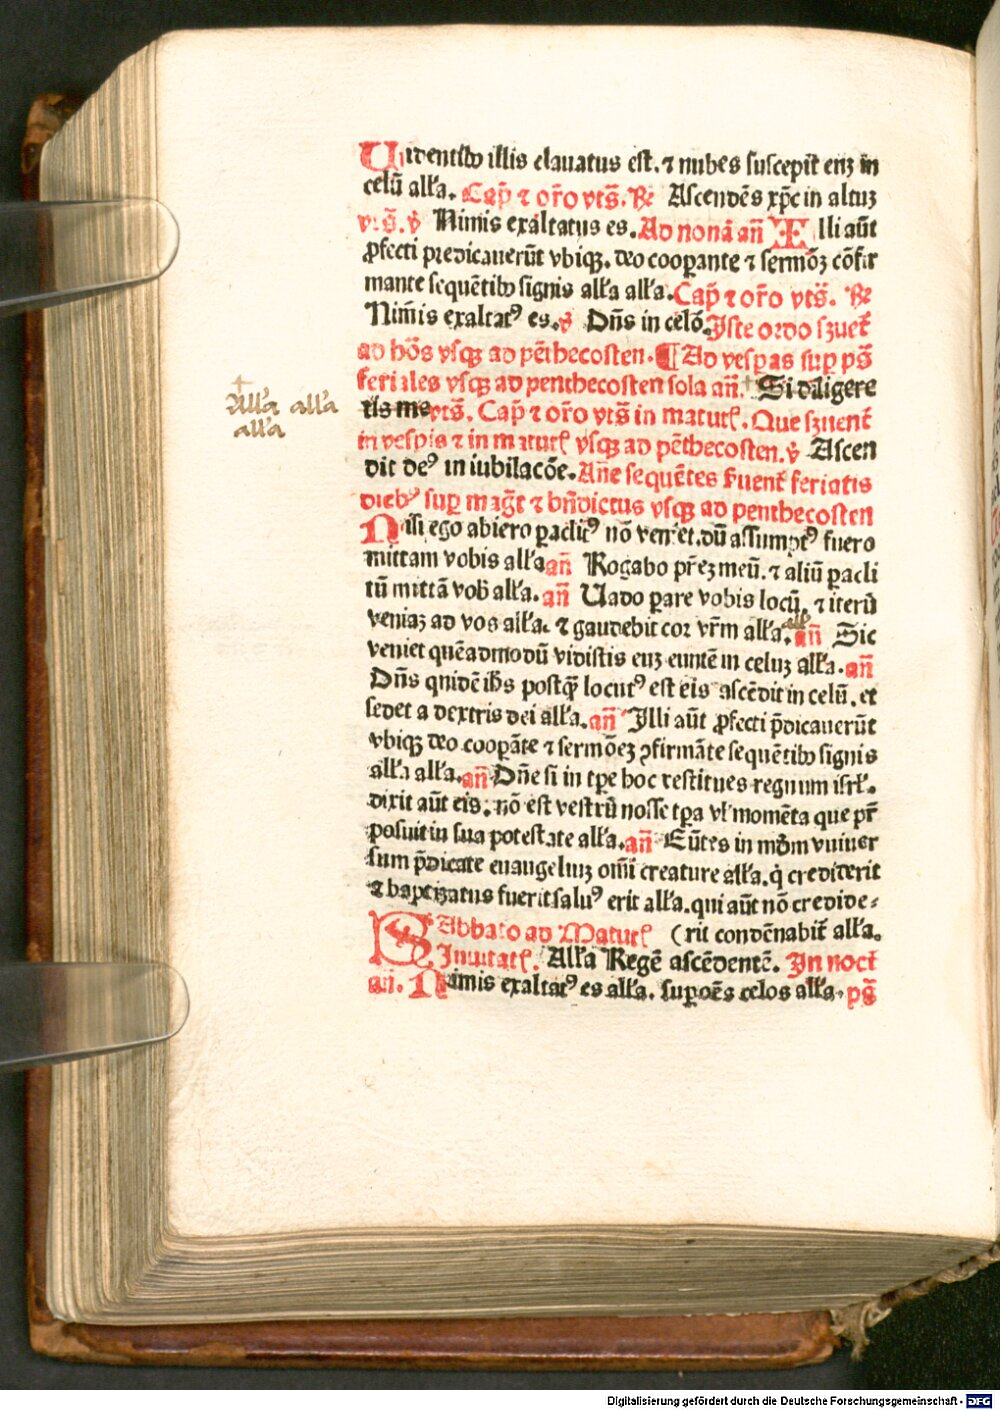 Uidentibꝰ illis eleuatus est. ⁊ nubes suscepit̄ euꝫ in
celū all'a. Cap̄ ⁊ or̄o vts̄. R̷ Ascendēs xp̄c in altuꝫ
vts̄. v̄ Nimis exaltatus es. Ad nonā an̄ Illi aūt
ꝓfecti predicauerūt vbiqꝫ. deo cooꝑante ⁊ sermōꝫ cōfir
mante sequētibꝰ signis all'a all'a. Cap̄ ⁊ or̄o vts̄. R̷
Nim̄is exaltatꝰ es. v̄ Dn̄s in celō. Iste ordo ẜuet̄
ad hōs vsqꝫ ad pēthecosten. ¶ Ad vesꝑas suꝑ ps̄
feriales vsqꝫ ad penthecosten sola an̄. Si diligere
tis me vts̄. Cap̄ ⁊ or̄o vts̄ in matut̄. Que ẜuent̄
in vesꝑis ⁊ in matut̄ vsqꝫ ad pēthecosten. v̄ Ascen
dit deꝰ in iubilacōe. An̄e sequētes fuent̄ feriatis
diebꝰ suꝑ maḡt ⁊ bn̄dictus vsqꝫ ad penthecosten
Nisi ego abiero ꝑaclitꝰ nō veniet. dū assumptꝰ fuero
mittam vobis all'a an̄ Rogabo pr̄eꝫ meū. ⁊ aliū ꝑacli
tū mittā vob̄ all'a. an̄ Uado ꝑare vobis locū. ⁊ iterū
veniaꝫ ad vos all'a. ⁊ gaudebit cor vr̄m all'a. all'a an̄ Sic
veniet quēadmodū vidistis euꝫ euntē in celuꝫ all'a. an̄
Dn̄s quidē ih̄s postqꝫ̄ locutꝰ est eis ascēdit in celū. et
sedet a dextris dei all'a. an̄ Illi aūt ꝓfecti p̄dicauerūt
vbiqꝫ deo cooꝑāte ⁊ sermōeꝫ ꝯfirmāte sequētibꝰ signis
all'a all'a. an̄ Dn̄e si in tꝑe hoc restitues regnum isrl̄.
dixit aūt eis. nō est vestrū nosse tꝑa vl' momēta que pr̄
posuit in sua potestate all'a. an̄ Eūtes in mūdm vniuer
sum p̄dicate euangeliuꝫ om̄i creature all'a. q̇ crediderit
⁊ baptizatus fuerit saluꝰ erit all'a. qui aūt nō credide⸗
Sabbato ad Matut̄ (rit condēnabit̄ all'a.
Inuitat̄. All'a Regē ascēdentē. In noct̄
an̄. Nimis exaltatꝰ es all'a. suꝑ oēs celos all'a. ps̄
✝
All'a all'a
all'a
Digitalisierung gefördert durch die Deutsche Forschungsgemeinschaft - DFG